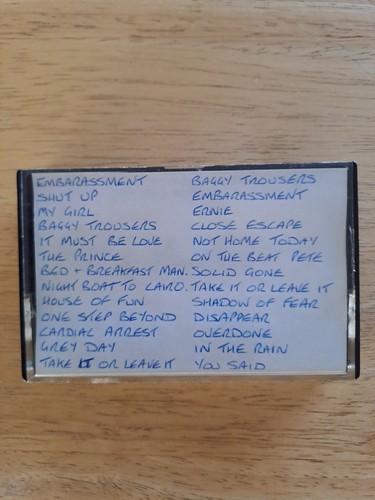 EMBARASSMENT
SHUT UP
MY GIRL
BAGGY TROUSERS
IT MUST BE LOVE
THE PRINCE
BED + BREAKFAST MAN.
NIGHT BOAT TO CAIRO.
HOUSE OF FUN
ONE STEP BEYOND
CARDIAL ARREST
GREY DAY
TAKE IT OR LEAVE IT
BAGGY TROUSERS
EMBARASSMENT
ERNIE
CLOSE ESCAPE
NOT HOME TODAY
ON THE BEAT PETE
SOLID GONE
TAKE IT OR LEAVE IT
SHADOW OF FEAR
DISAPPEAR
OVERDONE
IN THE RAIN
YOU SAID